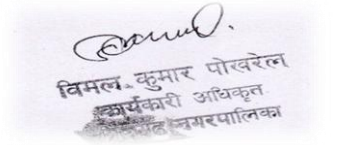 विमल कुमार पोखरेल
कार्यकारी अधिकृत
नगरपालिका